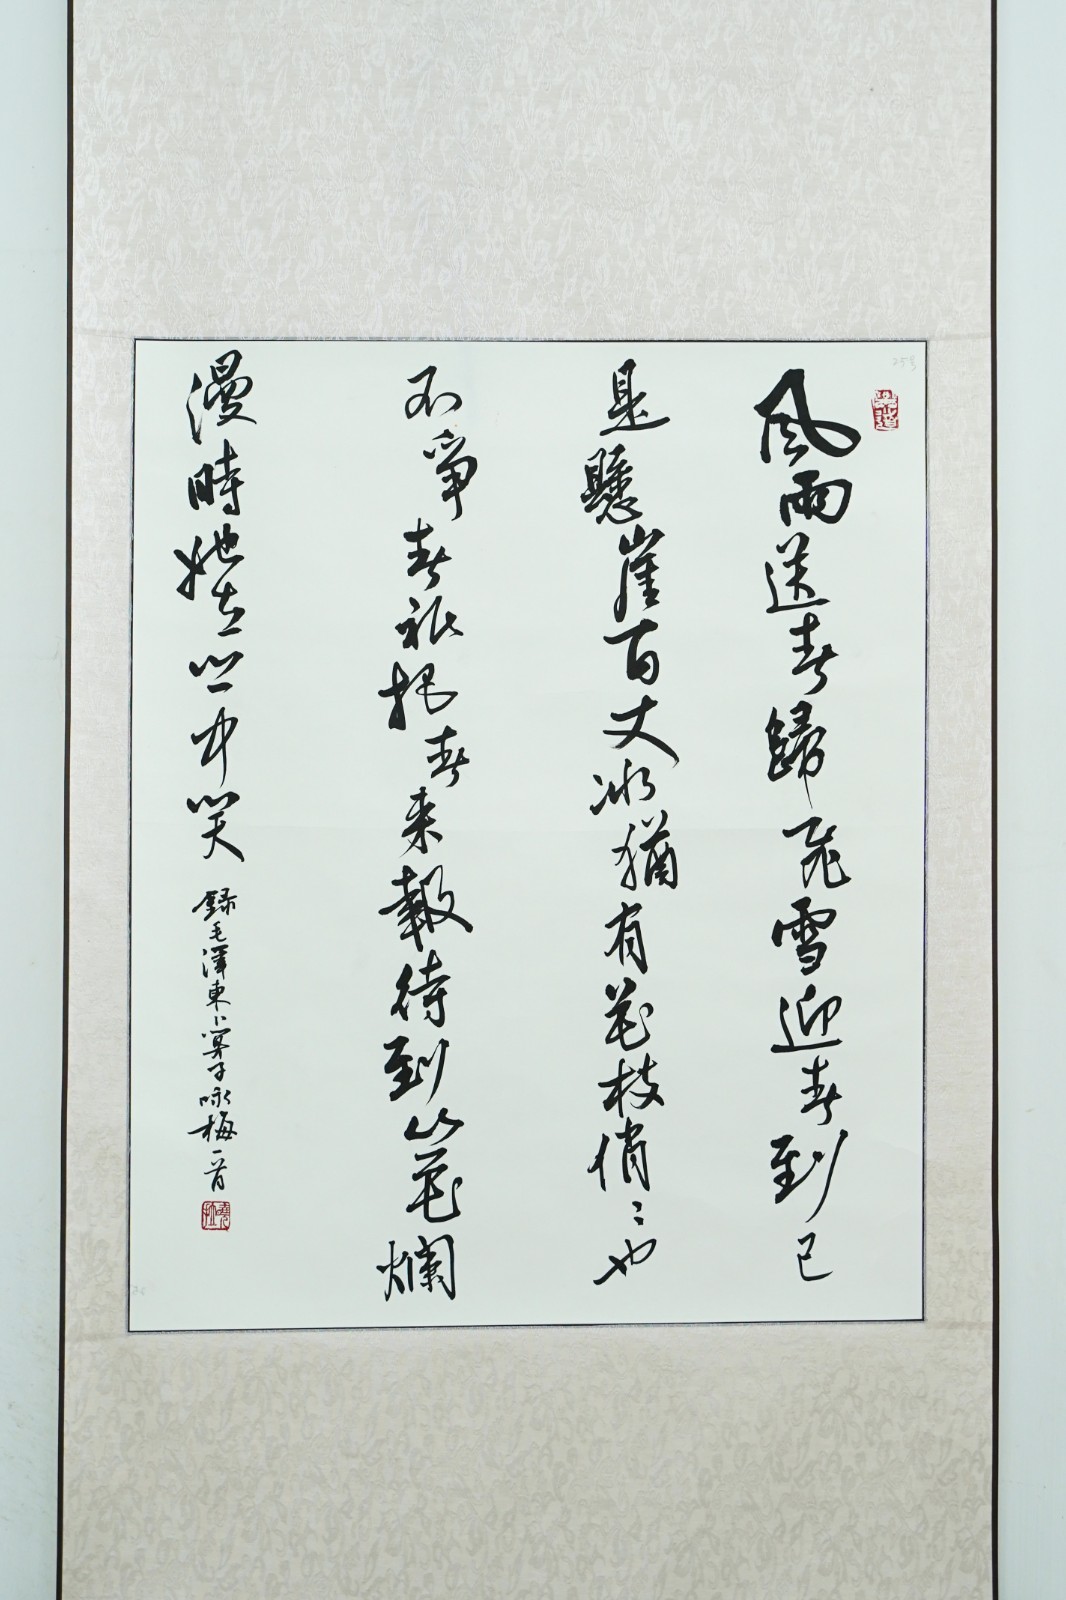 风雨送春歸飛雪迎春到已
是懸崖百丈冰猶有花枝俏〻也
不爭春祇把春来報待到山花爛
漫時她在丛中笑
録毛澤東卜算子咏梅一首